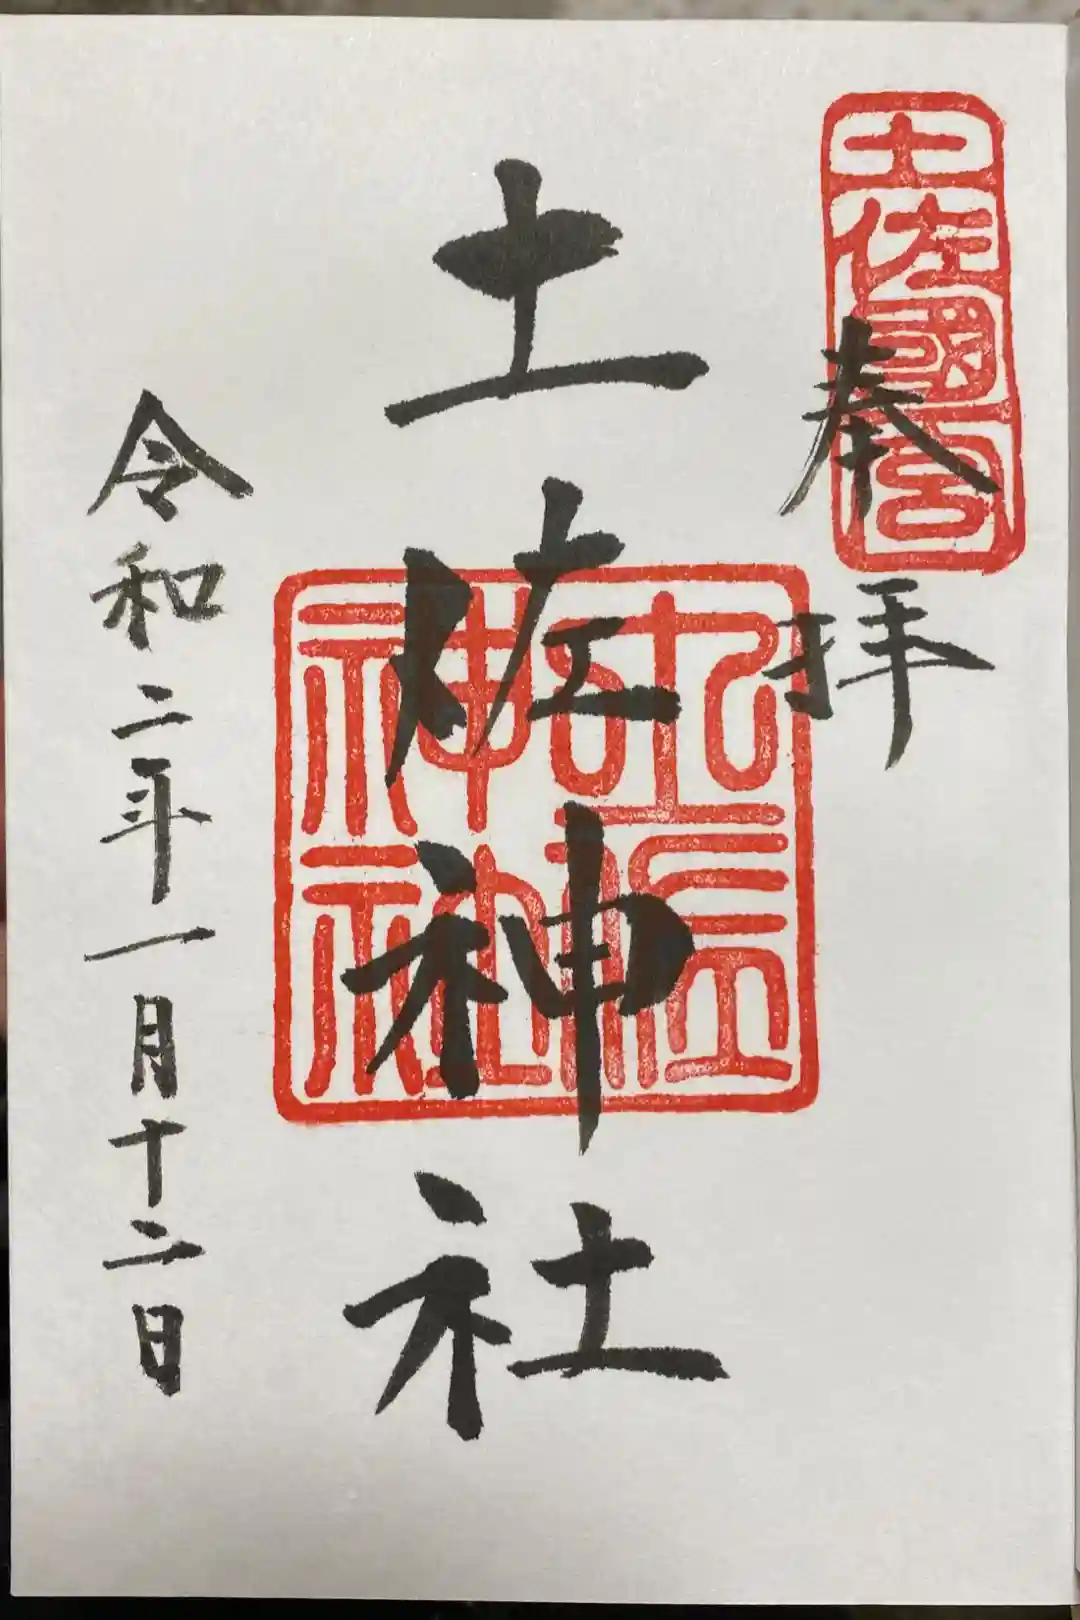 土佐國一宮
奉拝
土佐神社
土佐神社
令和二年一月十二日